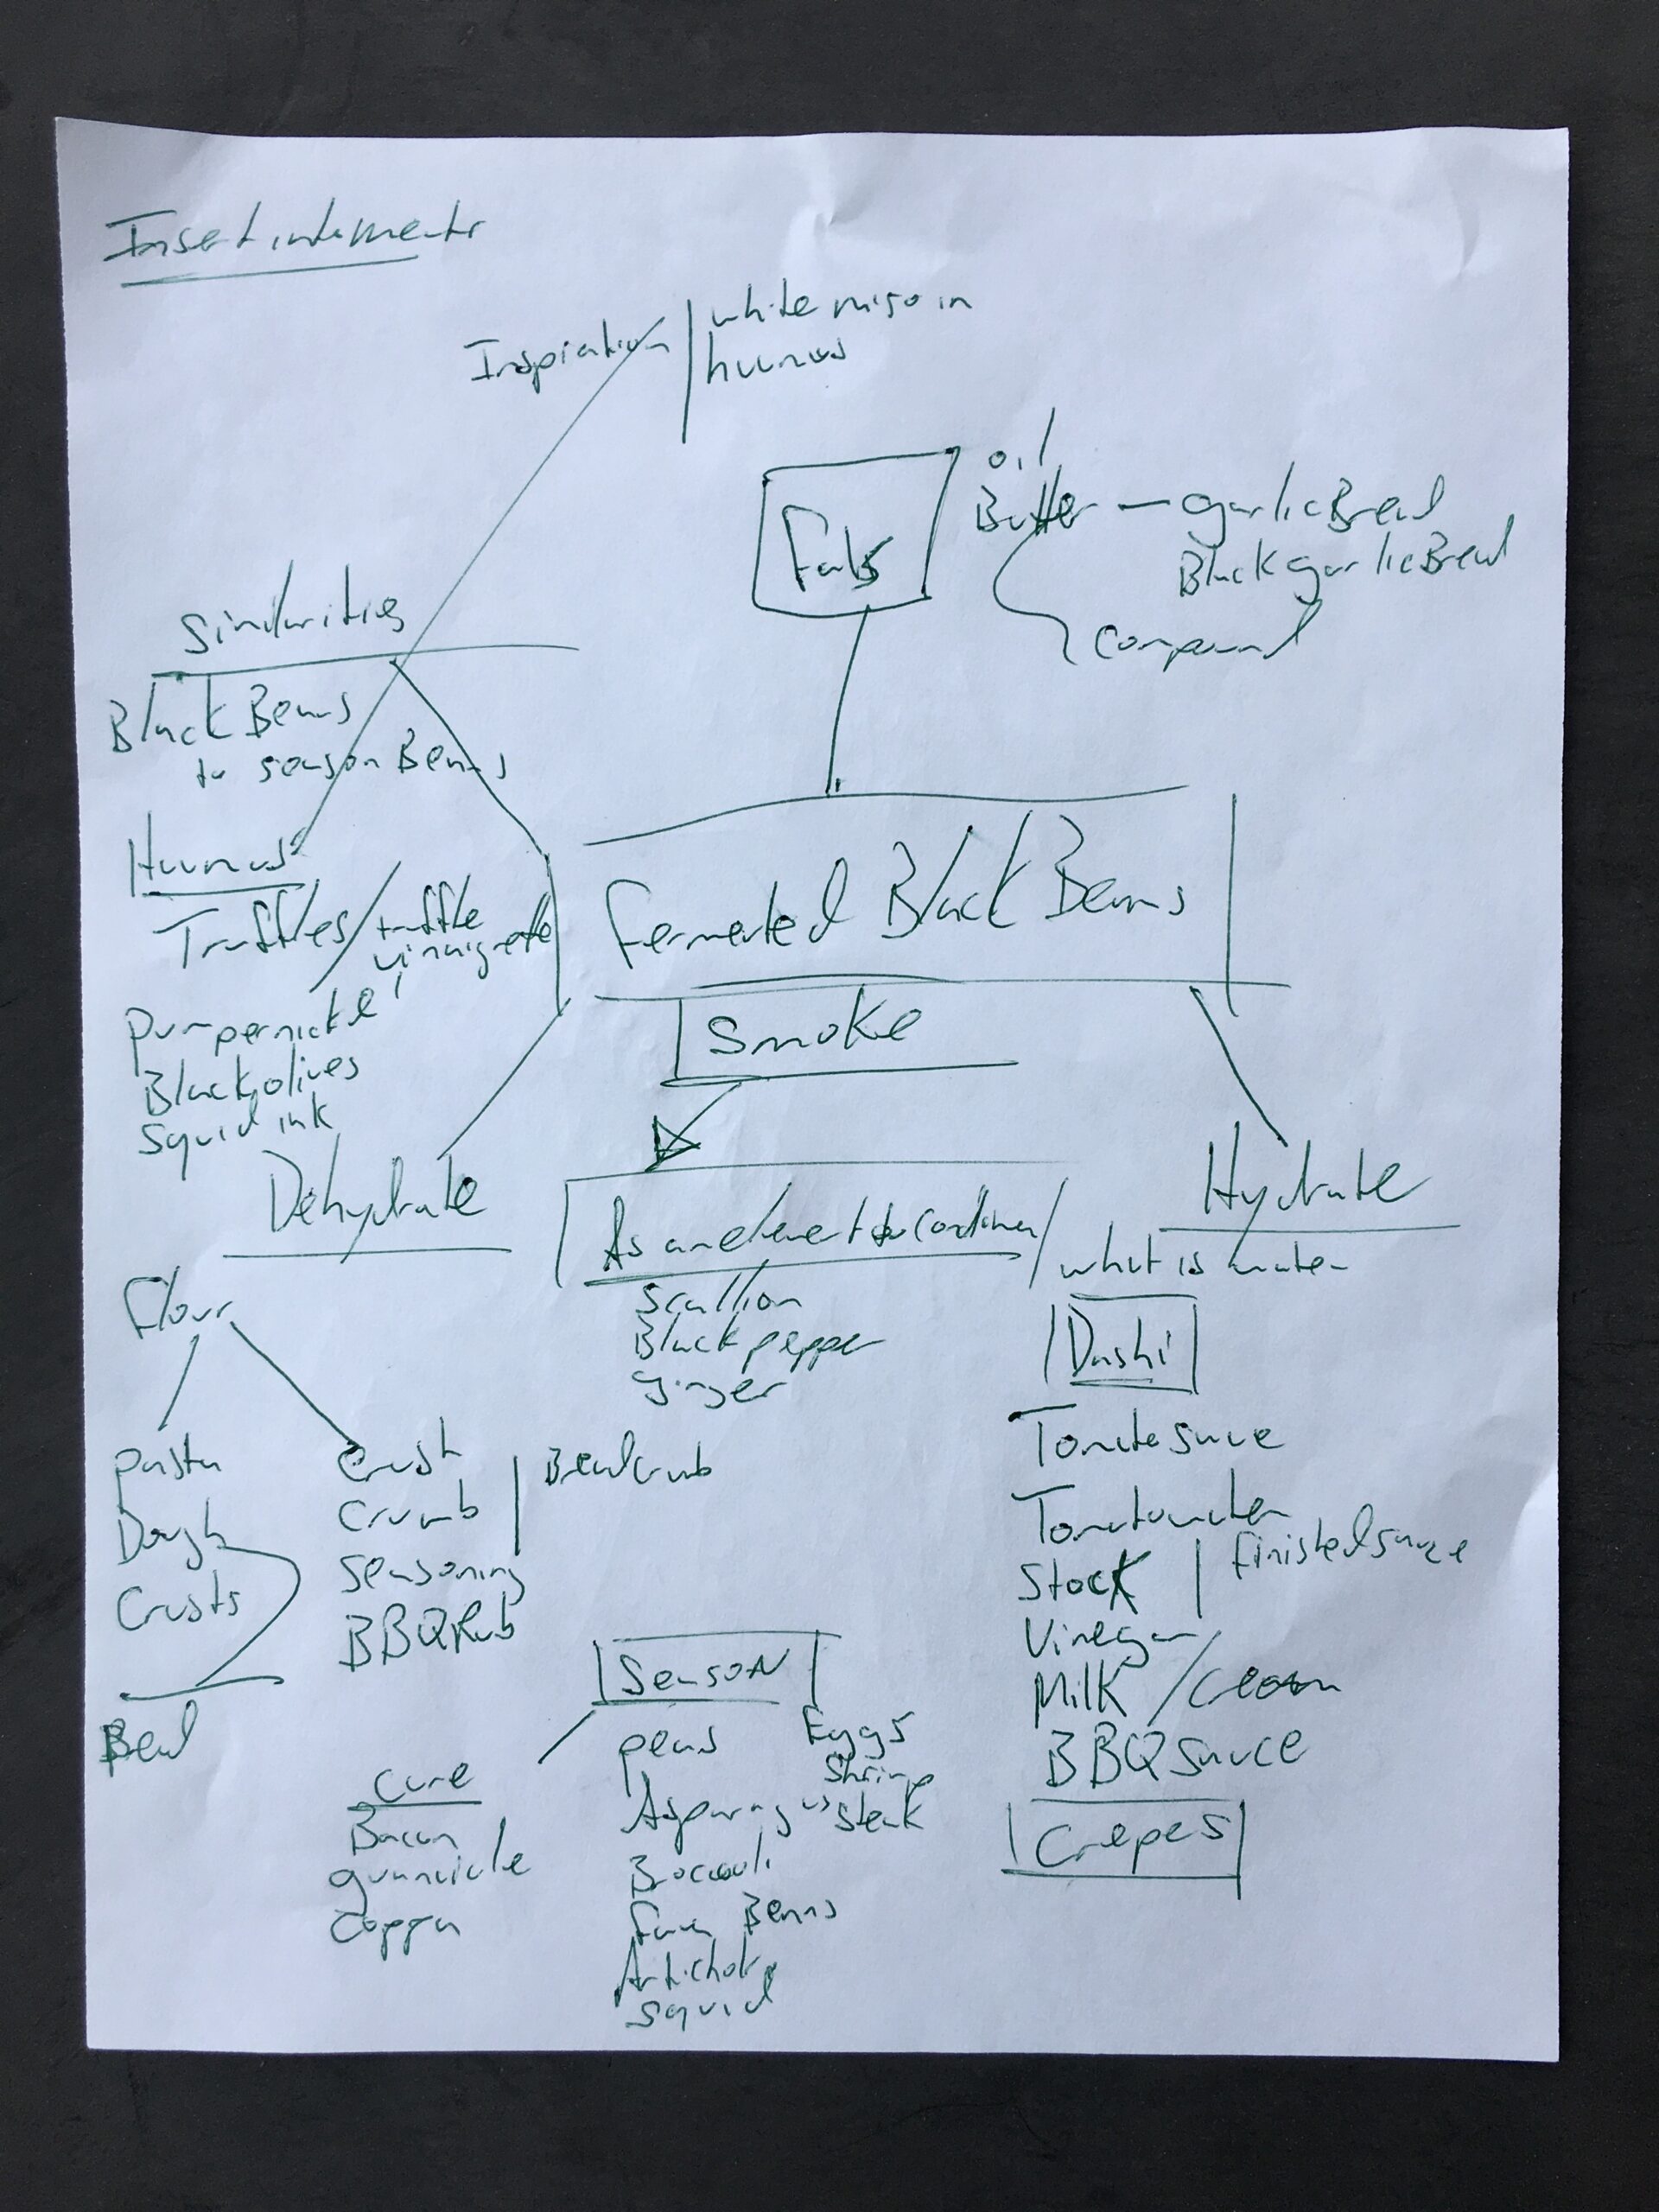 Insert into meats
Inspiration
white miso in
humus
Fats
oil
Butter — garlic Bread
Black garlic Bread
Compound
Similarities
Black Beans
to season Beans
Humus
Truffles / truffle
vinaigrette
pumpernickel
Black olives
squid ink
Fermented Black Beans
Smoke
Dehydrate
As an element to
Scallion
Black pepper
ginger
Hydrate
what is water
Dashi
Tomato sauce
Tomato water
Stock | finished sauce
Vinegar
Milk / cream
BBQ sauce
Crepes
Flour
pasta
Dough
Crusts
Bread
Crust
Crumb | Bread crumb
seasoning
BBQ Rub
Season
peas
Asparagus
Broccoli
fava Beans
Artichoke
squid
Eggs
Shrimp
steak
Cure
Bacon
guanciale
Coppa